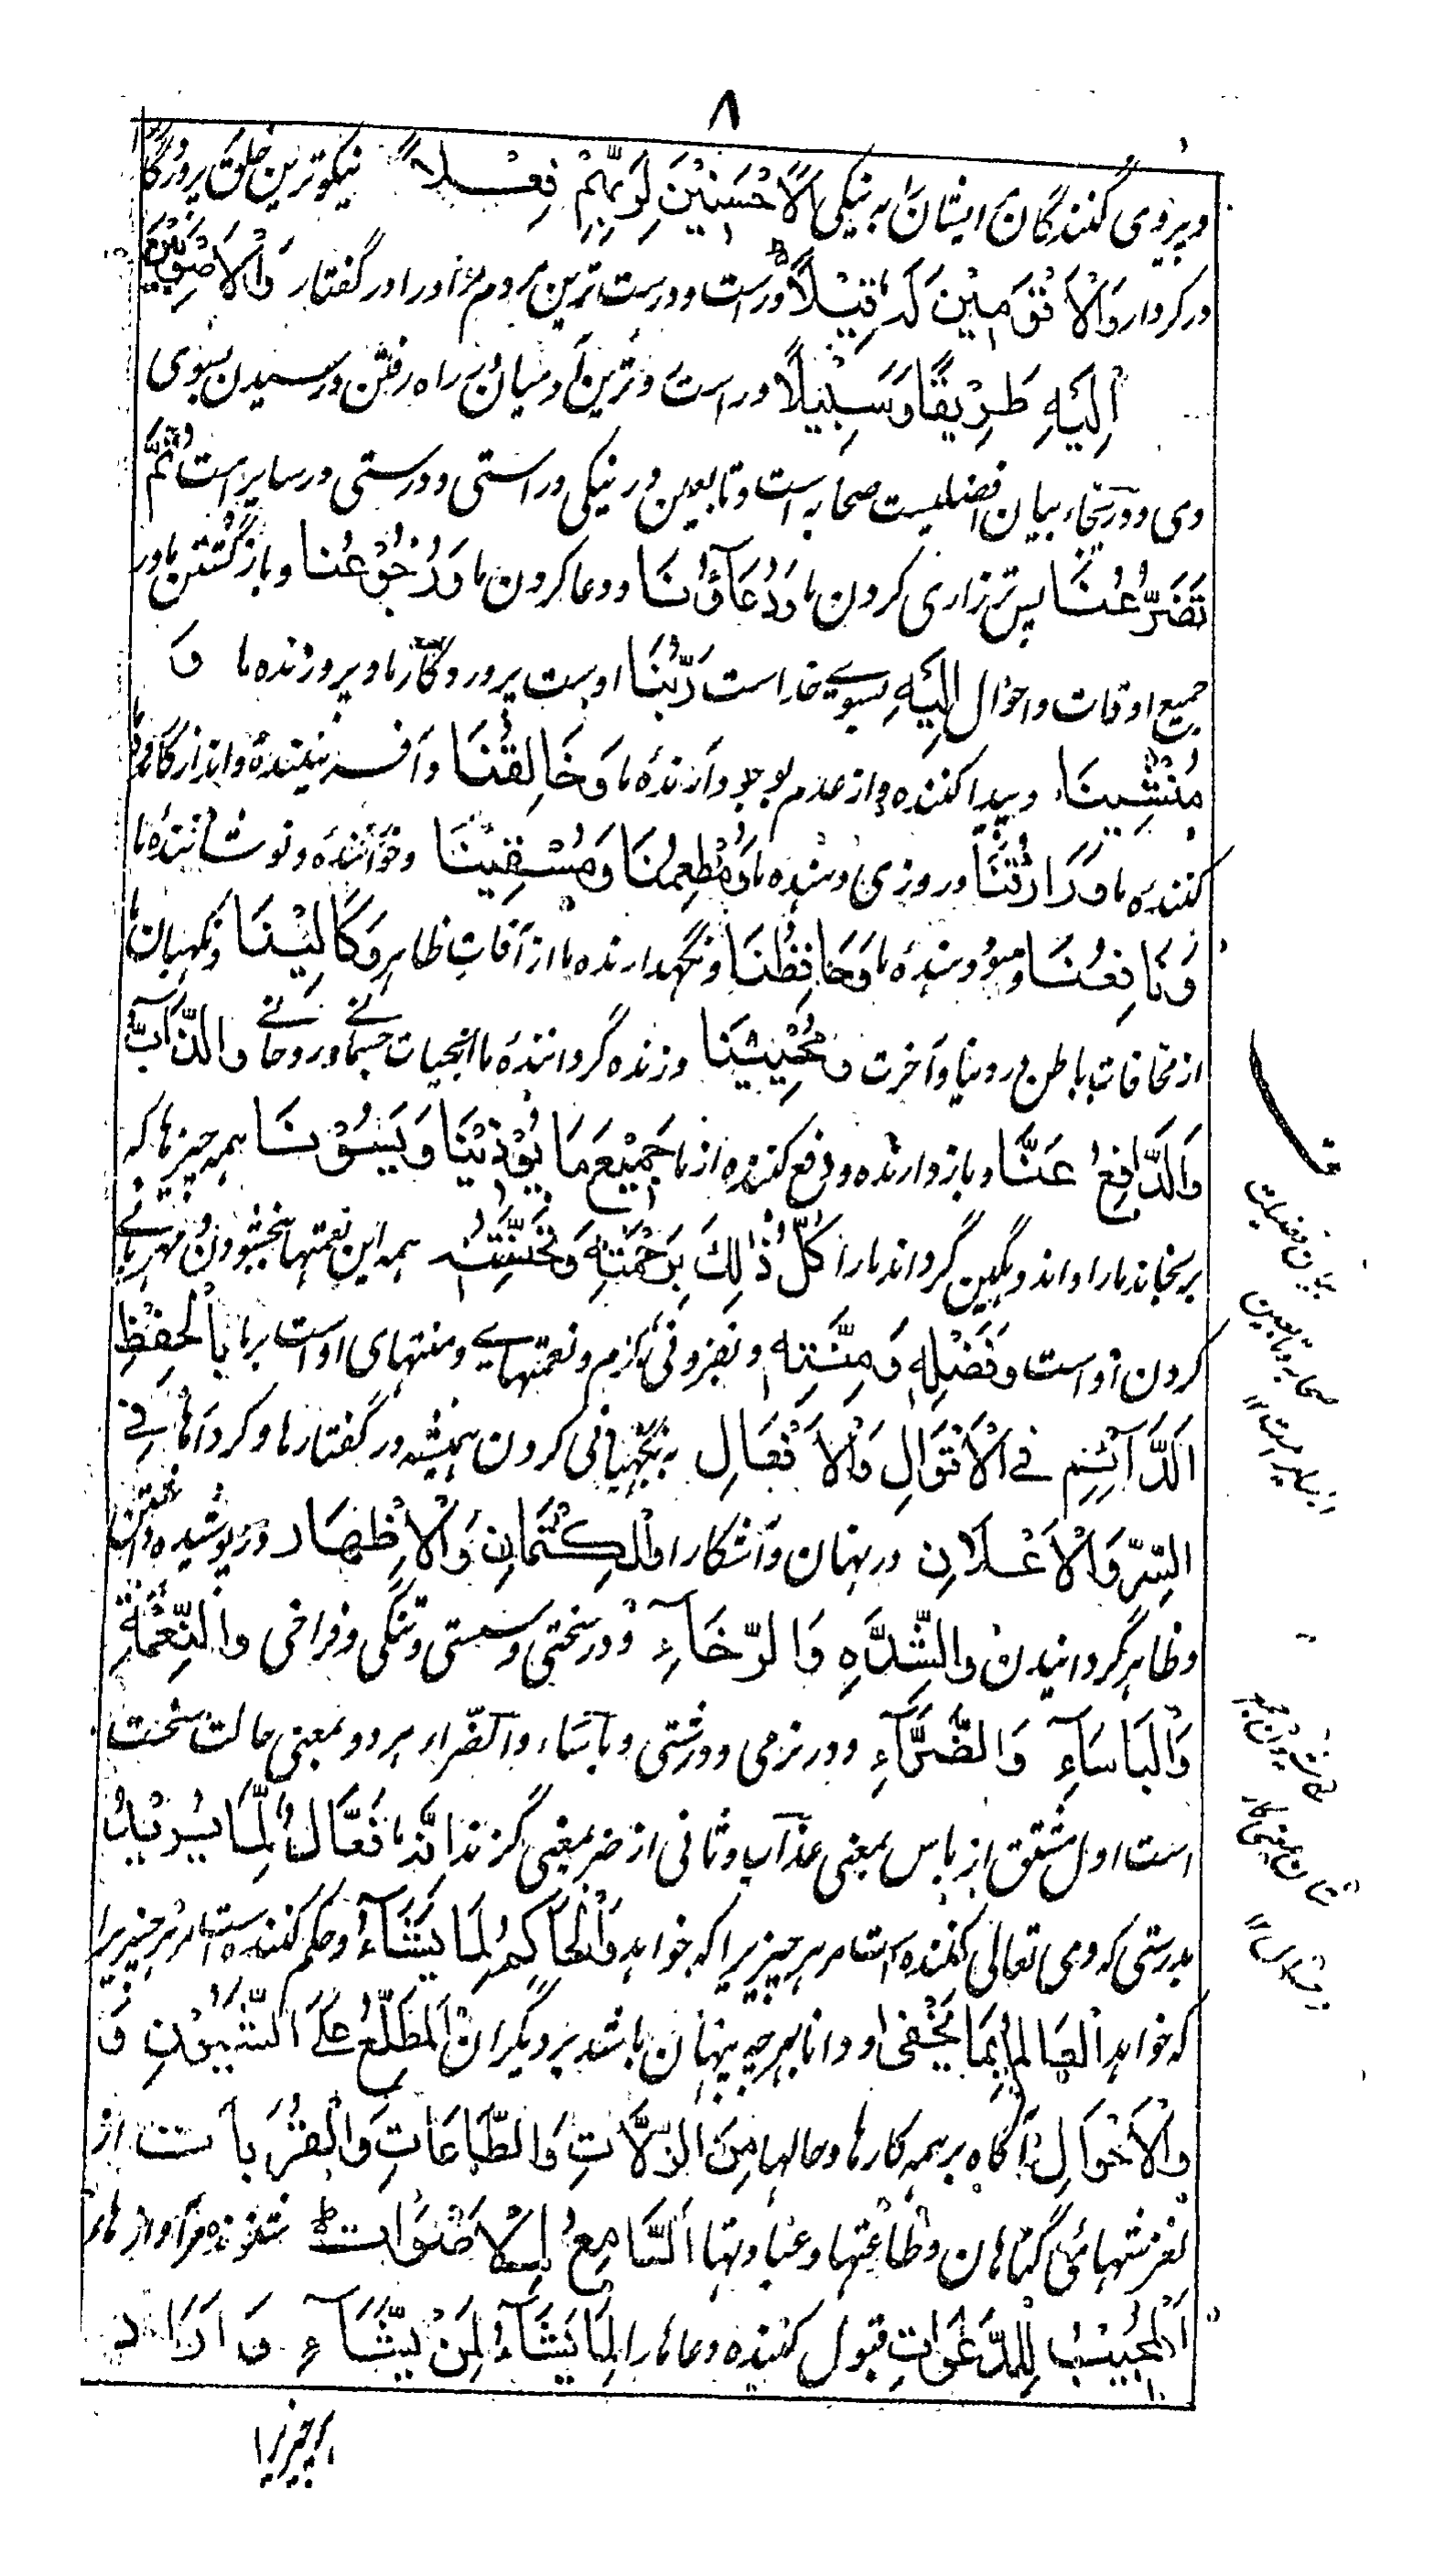 ۸
و پیروی کنندگان ایشان را به نیکی اَلْاَحْسَنِیْنَ لِرَبِّهِمْ فِعْلاً نیکوترین خلق پروردگار
در کردار وَالْاَقْوَمِیْنَ لَهٗ قِیْلاً و راست و درست ترین مردم مر او را در گفتار وَالْاَصْوَبِیْنَ
اِلَیْهِ طَرِیْقًا وَسَبِیْلًا و راست و ترین آدمیان در راه رفتن و رسیدن بسوی
وی و درینجا بیان افضلیت صحابه است و تابعین در نیکی و راستی و درستی و سایر امت ثُمَّ
تَضَرُّعُنَا پس تر زاری کردن ما وَدُعَاؤُنَا و دعا کردن ما وَرُجُوْعُنَا و باز گشتن ما در
جمیع اوقات و احوال اِلَیْهِ بسوے خدا است رَبُّنَا اوست پروردگار ما و پرورنده ما وَ
مُنْشِیْنَا و پیدا کننده و از عدم بوجود آرنده ما وَخَالِقُنَا و آفرینندهٔ و اندازگاه
کننده ما وَرَازِقُنَا و روزی دهنده ما وَمُطْعِمُنَا وَمُسْقِیْنَا و خوراننده و نوشاننده ما
وَنَافِعُنَا و سود دهنده ما وَحَافِظُنَا و نگهدارنده ما از آفات ظاهر وَکَالِیْنَا و نگهبان ما
از مخافات باطن در دنیا و آخرت وَمُحْیِیْنَا و زنده گرداننده ما بحیات جسمانے و روحانے وَالذَّابُّ
وَالدَّافِعُ عَنَّا و باز دارنده و دفع کننده از ما جَمِیْعَ مَا یُؤْذِیْنَا وَیَسُوْنَا همه چیزها که
برنجاند ما را و اندوهگین گرداند ما را کُلُّ ذٰلِكَ بِرَحْمَتِهٖ وَتَحَنُّنِهٖ همه این نعمتها ببخشودن و مهربانے
کردن اوست وَفَضْلِهٖ وَمِنَّتِهٖ و بفزونی کرم و نعمتهاے و منتهای او است بر ما بِالْحِفْظِ
الدَّآئِمِ فِی الْاَقْوَالِ وَالْاَفْعَالِ به نگهبانی کردن همیشه در گفتارها و کردارها فِی
السِّرِّ وَالْاَعْلَانِ در پنهان و آشکارا وَالْکِتْمَانِ وَالْاِظْهَار و در پوشیده داشتن
و ظاهر گردانیدن وَالشِّدَّهِ وَالرَّخَآءِ و در سختی و سستی و تنگی و فراخی وَالنِّعْمَةِ
وَالْبَاسَآءِ وَالضَّرَّآءِ و در نرمی و درشتی و بأساء و الضّراء هر دو بمعنی حالت سخت
است اول مشتق از باس بمعنی عذاب و ثانی از ضر بمعنی گزند اِنَّهٗ فَعَّالٌ لِّمَا یُرِیْدُ
بدرستی که وی تعالی کننده است مر هر چیزیرا که خواهد وَالْحَاکِمُ لِمَا یَشَآءُ و حکم کننده است مر هر چیزیرا
که خواهد اَلْعَالِمُ بِمَا یَخْفٰی او دانا بهر چه پنهان باشد بر دیگران اَلْمُطَّلِعُ عَلَی الشُّیُوْنِ وَ
وَالْاَحْوَالِ آگاه بر همه کارها و حالها مِنَ الزَّلَّاتِ وَالطَّاعَاتِ وَالْقُرُبَاتِ از
لغزشهائی گناهان و طاعتها و عبادتها اَلسَّامِعُ لِلْاَصْوَاتِ شنونده مر آوازها را
اَلْمُجِیْبُ لِلدَّعَوَاتِ قبول کننده دعاها را لِمَا یَشَآءُ لِمَنْ یَّشَآءِ وَ اَرَادَ
هر چیزیرا
بیان فضیلت
صحابه و تابعین
و سایر امت ۱۲